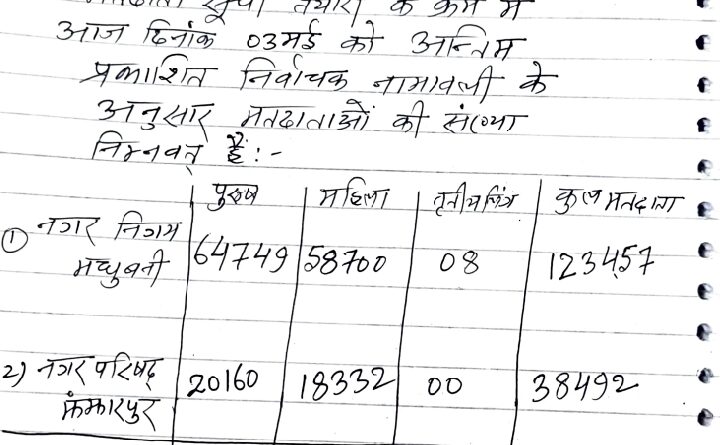 मतदाता सूची तैयारी के क्रम में
आज दिनांक 03मई को अन्तिम
प्रकाशित निर्वाचक नामावली के
अनुसार मतदाताओं की संख्या
निम्नवत् है:-
पुरुष महिला तृतीय लिंग कुल मतदाता
① नगर निगम
मधुबनी 64749 58700 08 123457
2) नगर परिषद् 20160 18332 00 38492
झंझारपुर